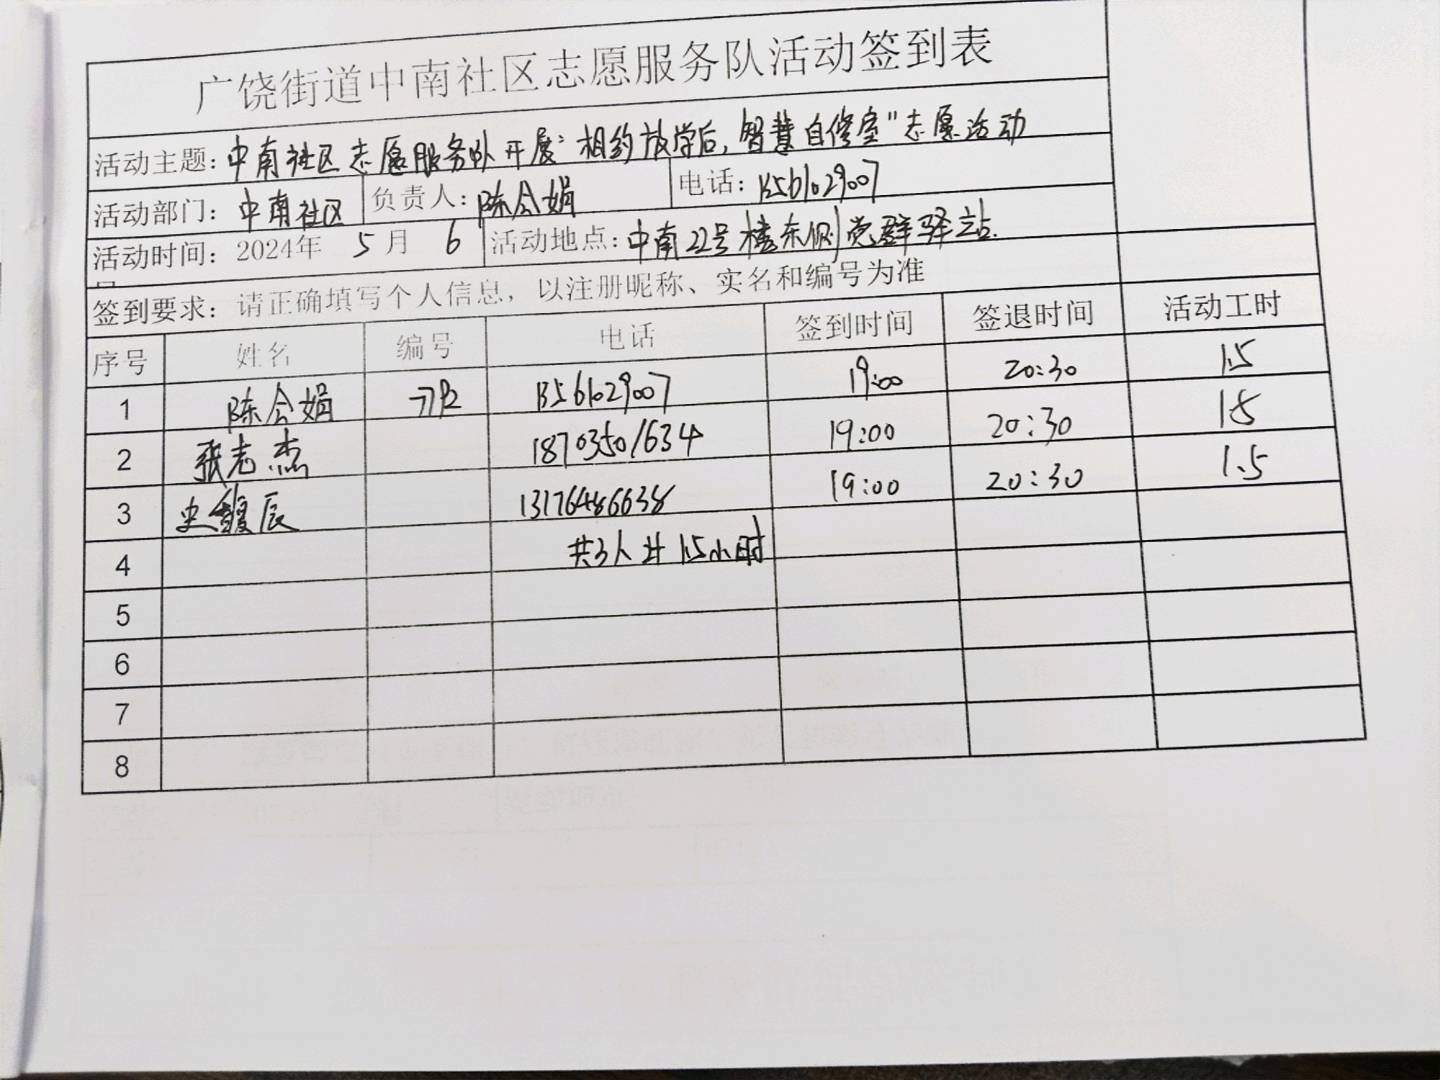 广饶街道中南社区志愿服务队活动签到表
活动主题：中南社区志愿服务队开展“相约放学后，智慧自修室”志愿活动
活动部门：中南社区 负责人：陈会娟 电话：13561029007
活动时间：2024年 5月 6 活动地点：中南22号楼东侧党群驿站.
签到要求：请正确填写个人信息，以注册昵称、实名和编号为准
序号 姓名 编号 电话 签到时间 签退时间 活动工时
1 陈会娟 13561029007 19:00 20:30 1.5
2 张志杰 18703501634 19:00 20:30 1.5
3 史馥辰 13176486638 19:00 20:30 1.5
4 共3人 计 1.5小时
5
6
7
8